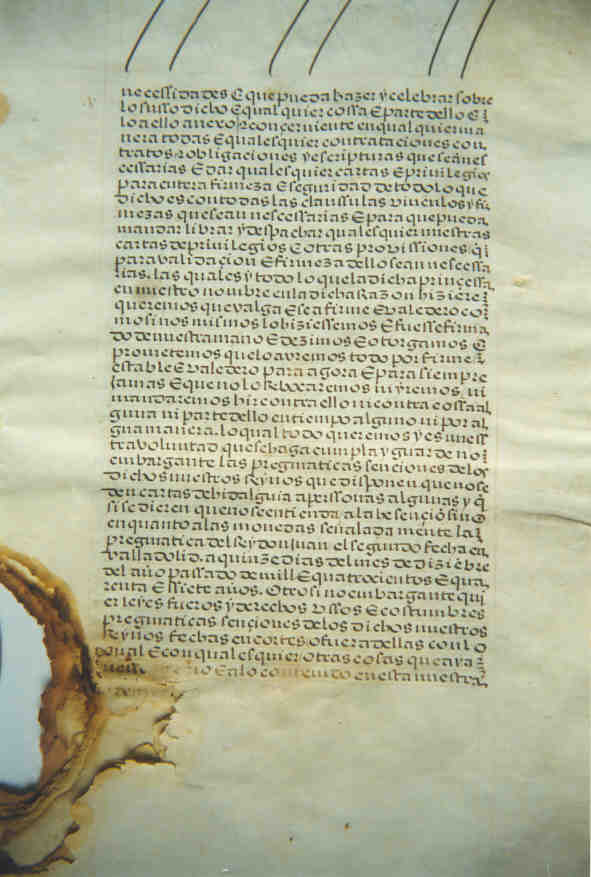 necessidades E que pueda hazer y celebrar sobre
lo susso dicho E qual quier cossa E parte dello E
lo a ello anexo & concerniente en qual quier ma
nera todas E quales quier contrataciones con
tratos & obligaciones y escripturas que sean nes
cessarias E dar quales quier cartas E privilegios
para entera firmeza E seguridad de todo lo que
dicho es con todas las claussulas vinculos y fir
mezas que sean nescessarias E para que pueda
mandar librar y despachar quales quier nuestras
cartas de privilegios E otras provissiones q̃
para validacion E firmeza dello sean nescessa
rias. las quales y todo lo que la dicha princessa
en nuestro nombre en la dicha Razon hiziere
queremos que valga E sea firme E valedero co
mo si nos mismos lo hiziessemos E fuesse firma
do de nuestra mano E dezimos E otorgamos E
prometemos que lo avremos todo por firme
estable E valedero para agora E para siempre
jamas E que no lo Rebocaremos ni yremos ni
mandaremos hir contra ello ni contra cossa al
guna ni parte dello en tiempo alguno ni por al
guna manera. lo qual todo queremos y es nuess
tra voluntad que se haga cumpla y guarde no
embargante las pregmaticas senciones de los
dichos nuestros Reynos que disponen que no se
den cartas de hidalguia a perssonas algunas y q̃
si se dieren que no se entienda a la hesencion sino
en quanto a las monedas señalada mente la
pregmatica del Rey don Juan el segundo fecha en
valladolid. a quinze dias del mes de diziẽbre
del año passado de mill E quatrocientos E qua
renta E ssiete años. Otrosi no embargante qui
er leyes fueros y derechos vssos E costumbres
pregmaticas senciones de los dichos nuestros
Reynos fechas en cortes o fuera dellas con lo
qual E con quales quier otras cosas que aya
E a lo contenido en esta nuestra